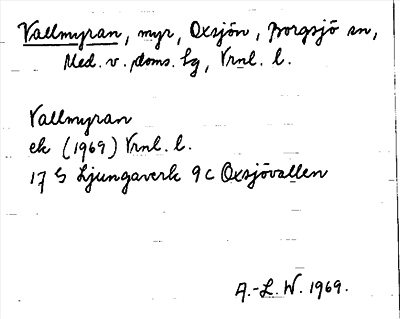 Vallmyran, myr, Oxsjön, Borgsjö sn,
Med. v. doms. lg, Vrnl. l.
Vallmyran
ek (1969) Vrnl. l.
17 G Ljungaverk 9 c Oxsjövallen
A.-L. W. 1969.